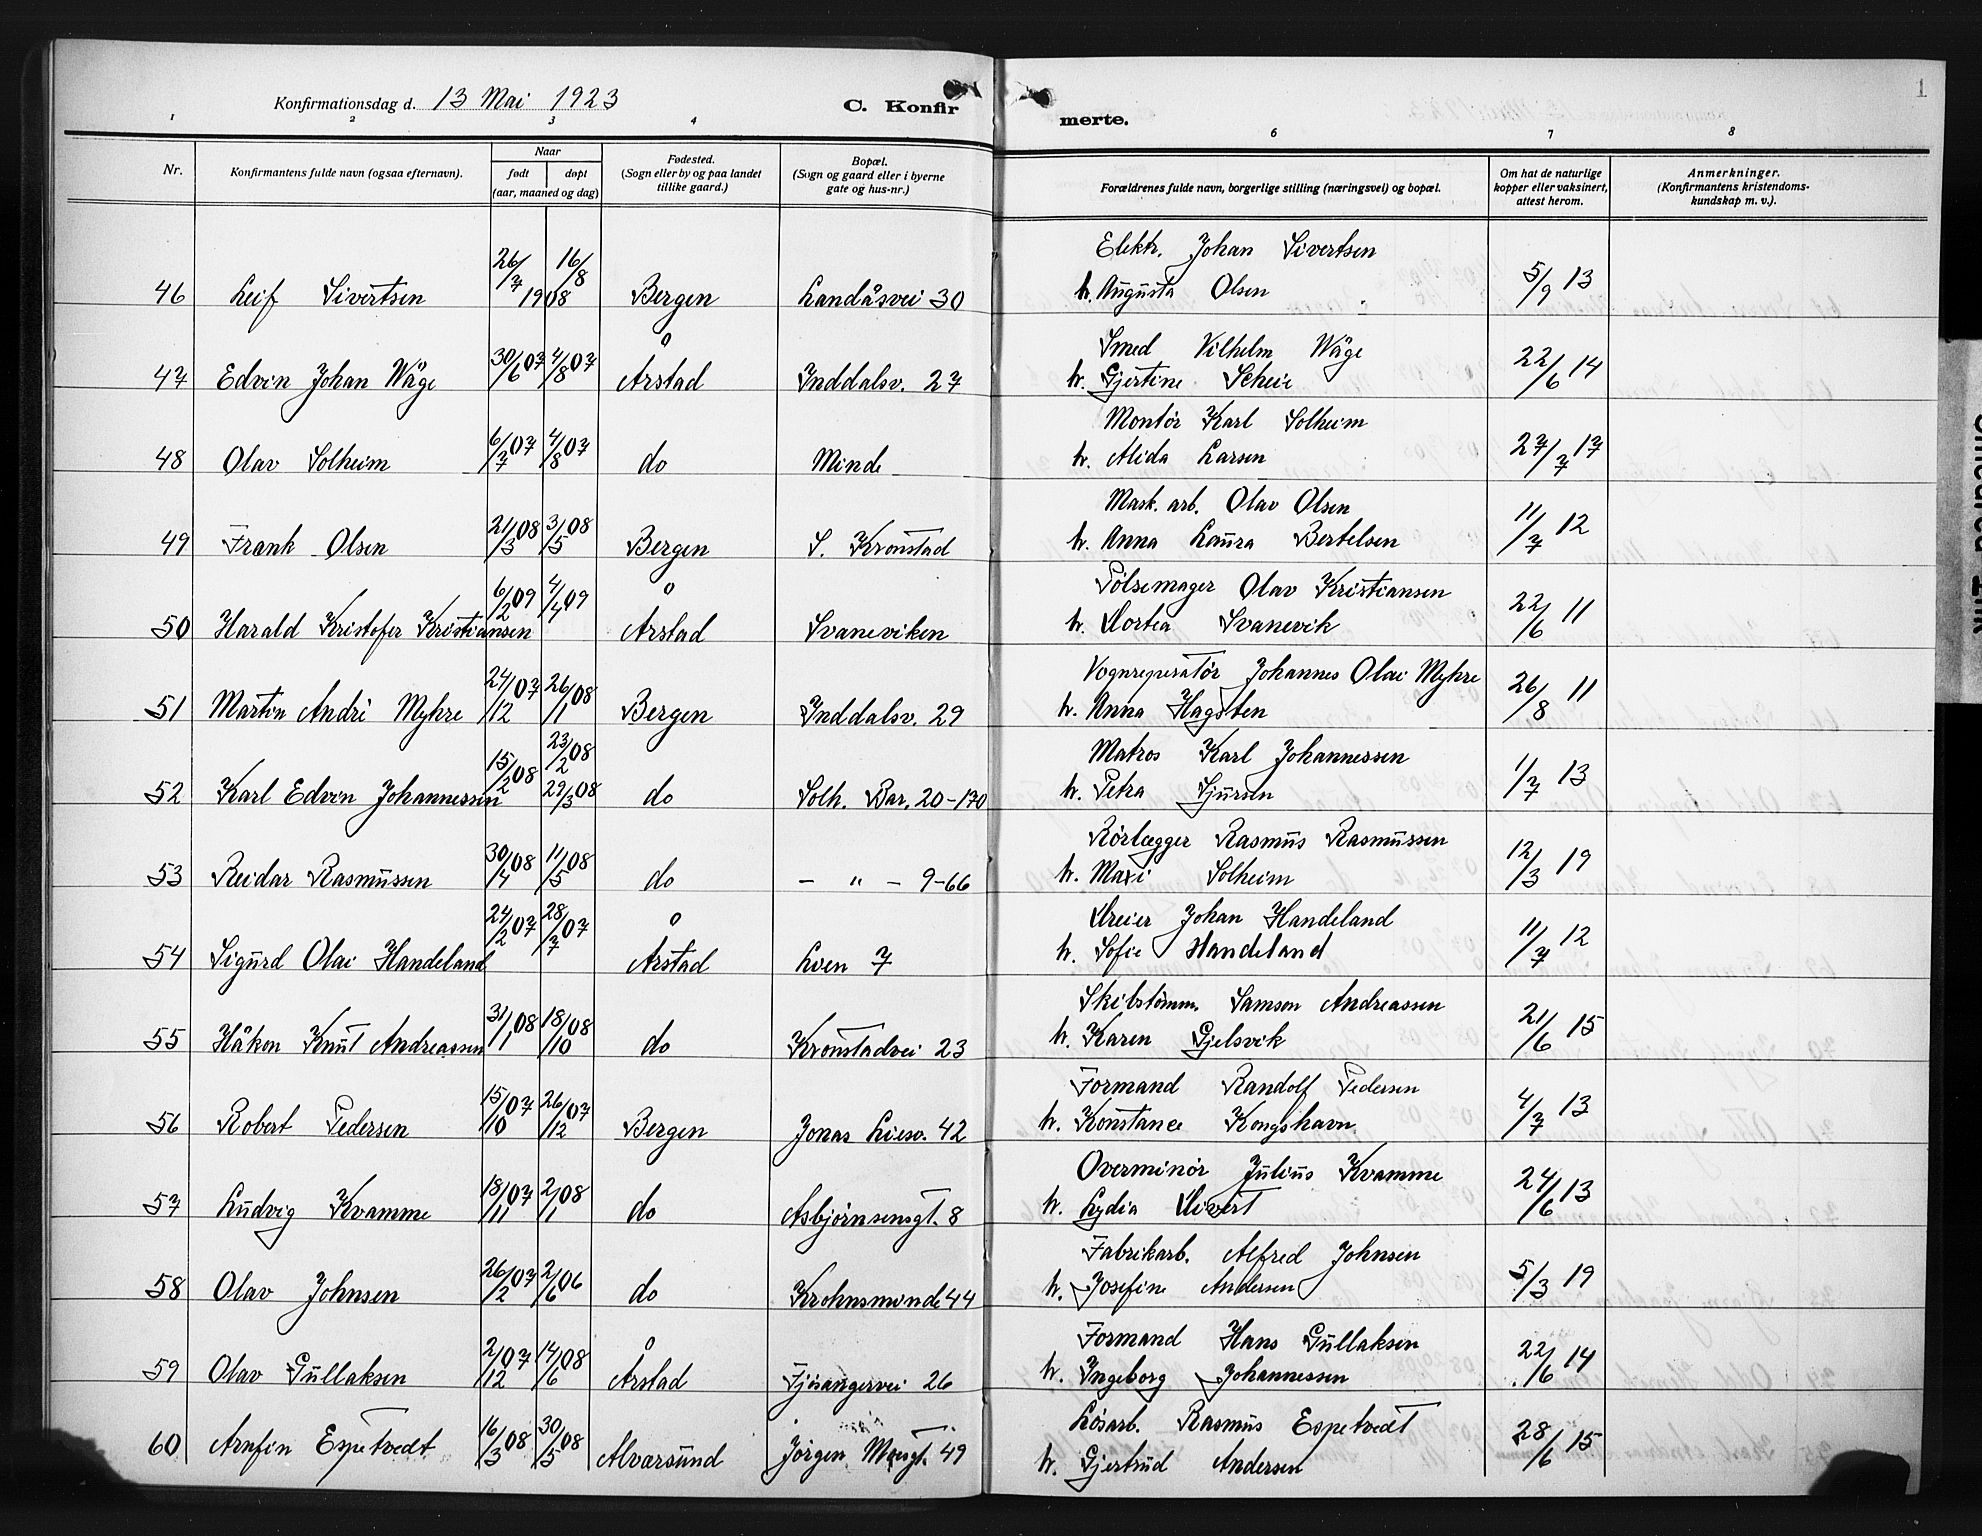 Konfirmationsdag d. 13 Mai 1923 C. Konfir merte. 1
1 2 3 4 6 7 8
Nr. Konfirmantens fulde navn (ogsaa efternavn). Naar født døpt (aar, maaned og dag) Fødested. (Sogn eller by og paa landet tillike gaard.) Bopæl. (Sogn og gaard eller i byerne gate og hus-nr.) Forældrenes fulde navn, borgerlige stilling (næringsvei) og bopæl. Om hat de naturlige kopper eller vaksinert, attest herom. Anmerkninger. (Konfirmantens kristendoms-kundskap m. v.).
Elektr. Johan Sivertsen
46 Leif Sivertsen 26/7 16/8 1908 Bergen Landåsvei 30 h. Augusta Olsen 5/9 13
Smed Vilhelm Wåge
47 Edvin Johan Wåge 30/6 07 4/8 07 Årstad Inddalsv. 27 h. Gjertine Scheie 22/6 14
Montør Karl Solheim
48 Olav Solheim 6/7 07 4/8 07 do Minde h. Alida Larsen 27/7 17
Mask. arb. Olav Olsen
49 Frank Olsen 21/3 08 3/5 08 Bergen S. Kronstad h. Anna Laura Bertelsen 11/7 12
Pølsemager Olav Kristiansen
50 Harald Kristofer Kristiansen 6/2 09 4/4 09 Årstad Svaneviken h. Dortea Svanevik 22/6 11
Vognreperatør Johannes Olai Myhre
51 Martin Andri Myhre 24/12 07 26/1 08 Bergen Inddalsv. 29 h. Anna Hagsten 26/8 11
Matros Karl Johannessen
52 Karl Edvin Johannessen 15/2 08 23/2 08 29/3 08 do Solh. Bar. 20-170 h. Petra Sjursen 1/7 13
Rørlægger Rasmus Rasmussen
53 Reidar Rasmussen 30/4 08 11/5 08 do - " - 9-66 h. Solheim 12/3 19
Dreier Johan Handeland
54 Sigurd Olai Handeland 24/2 07 28/7 07 Årstad Lien 7 h. Sofie Handeland 11/7 12
Skibstømm. Samson Andreassen
55 Håkon Knut Andreassen 31/1 08 18/10 08 do Kronstadvei 23 h. Karen Gjelsvik 21/6 15
Formand Randolf Pedersen
56 Robert Pedersen 15/10 07 26/12 07 Bergen Jonas Liesv. 42 h. Konstance Kongshavn 4/7 13
Overminør Julius Kvamme
57 Ludvig Kvamme 18/11 07 2/1 08 do Asbjørnsensgt. 8 h. Lydia 24/6 13
Fabrikarb. Alfred Johnsen
58 Olav Johnsen 26/2 07 2/6 06 do Krohnsminde 44 h. Josefine Andersen 5/3 19
Formand Hans Gullaksen
59 Olav Gullaksen 2/12 07 14/6 08 Årstad Fjøsangervei 26 h. Ingeborg Johannessen 22/6 14
Løsarb. Rasmus Espetvedt
60 Arnfin Espetvedt 16/3 08 30/5 08 Alvørsund Jørgen Moesgt. 49 h. Gjertrud Andersen 28/6 15